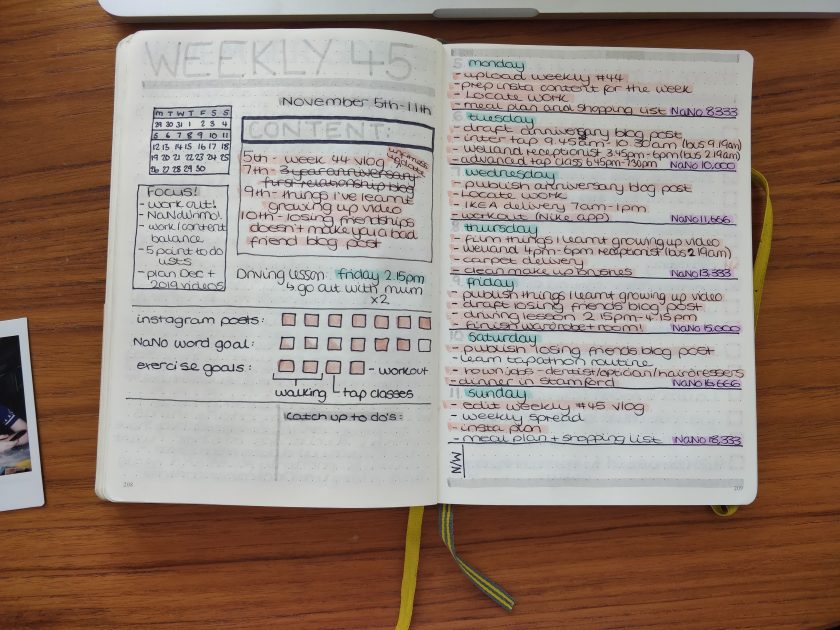 WEEKLY 45
November 5th-11th
M T W T F S S
29 30 31 1 2 3 4
5 6 7 8 9 10 11
12 13 14 15 16 17 18
19 20 21 22 23 24 25
26 27 28 29 30
FOCUS!
- work out!
- NaNoWriMo!
- work/content
balance
- 5 point to do
lists
- plan Dec +
2019 videos
CONTENT:
5th - week 44 vlog
7th - 3 year anniversary
first relationship blog
9th - things i've learnt
growing up video
10th - losing friendships
doesn't make you a bad
friend blog post
Driving lesson: friday 2.15pm
↳ go out with mum
x2
instagram posts:
NaNo word goal:
exercise goals: - workout
walking tap classes
catch up to do's:
208
5 monday
- upload weekly #44
- prep insta content for the week
- Locate work
- meal plan and shopping list NaNo 8333
6 tuesday
- draft anniversary blog post
- inter tap 9.45am-10.30am (bus 9.19am)
- welland receptionist 3.45pm-6pm (bus 2.19am)
- advanced tap class 6.45pm-7.30pm NaNo 10,000
7 wednesday
- publish anniversary blog post
- Locate work
- IKEA delivery 7am-1pm
- workout (Nike app) NaNo 11,666
8 thursday
- film things i learnt growing up video
- welland 4pm-6pm receptionist (bus 2.19am)
- carpet delivery
- clean make up brushes NaNo 13,333
9 friday
- publish things i learnt growing up video
- draft losing friends blog post
- driving lesson 2.15pm-4.15pm
- finish wardrobe + room! NaNo 15,000
10 saturday
- publish losing friends blog post
- learn tapathon routine
- town jobs - dentist/optician/hairdressers
- dinner in stamford NaNo 16,666
11 sunday
- edit weekly #45 vlog
- weekly spread
- insta plan
- meal plan + shopping list NaNo 18,333
M/N
209